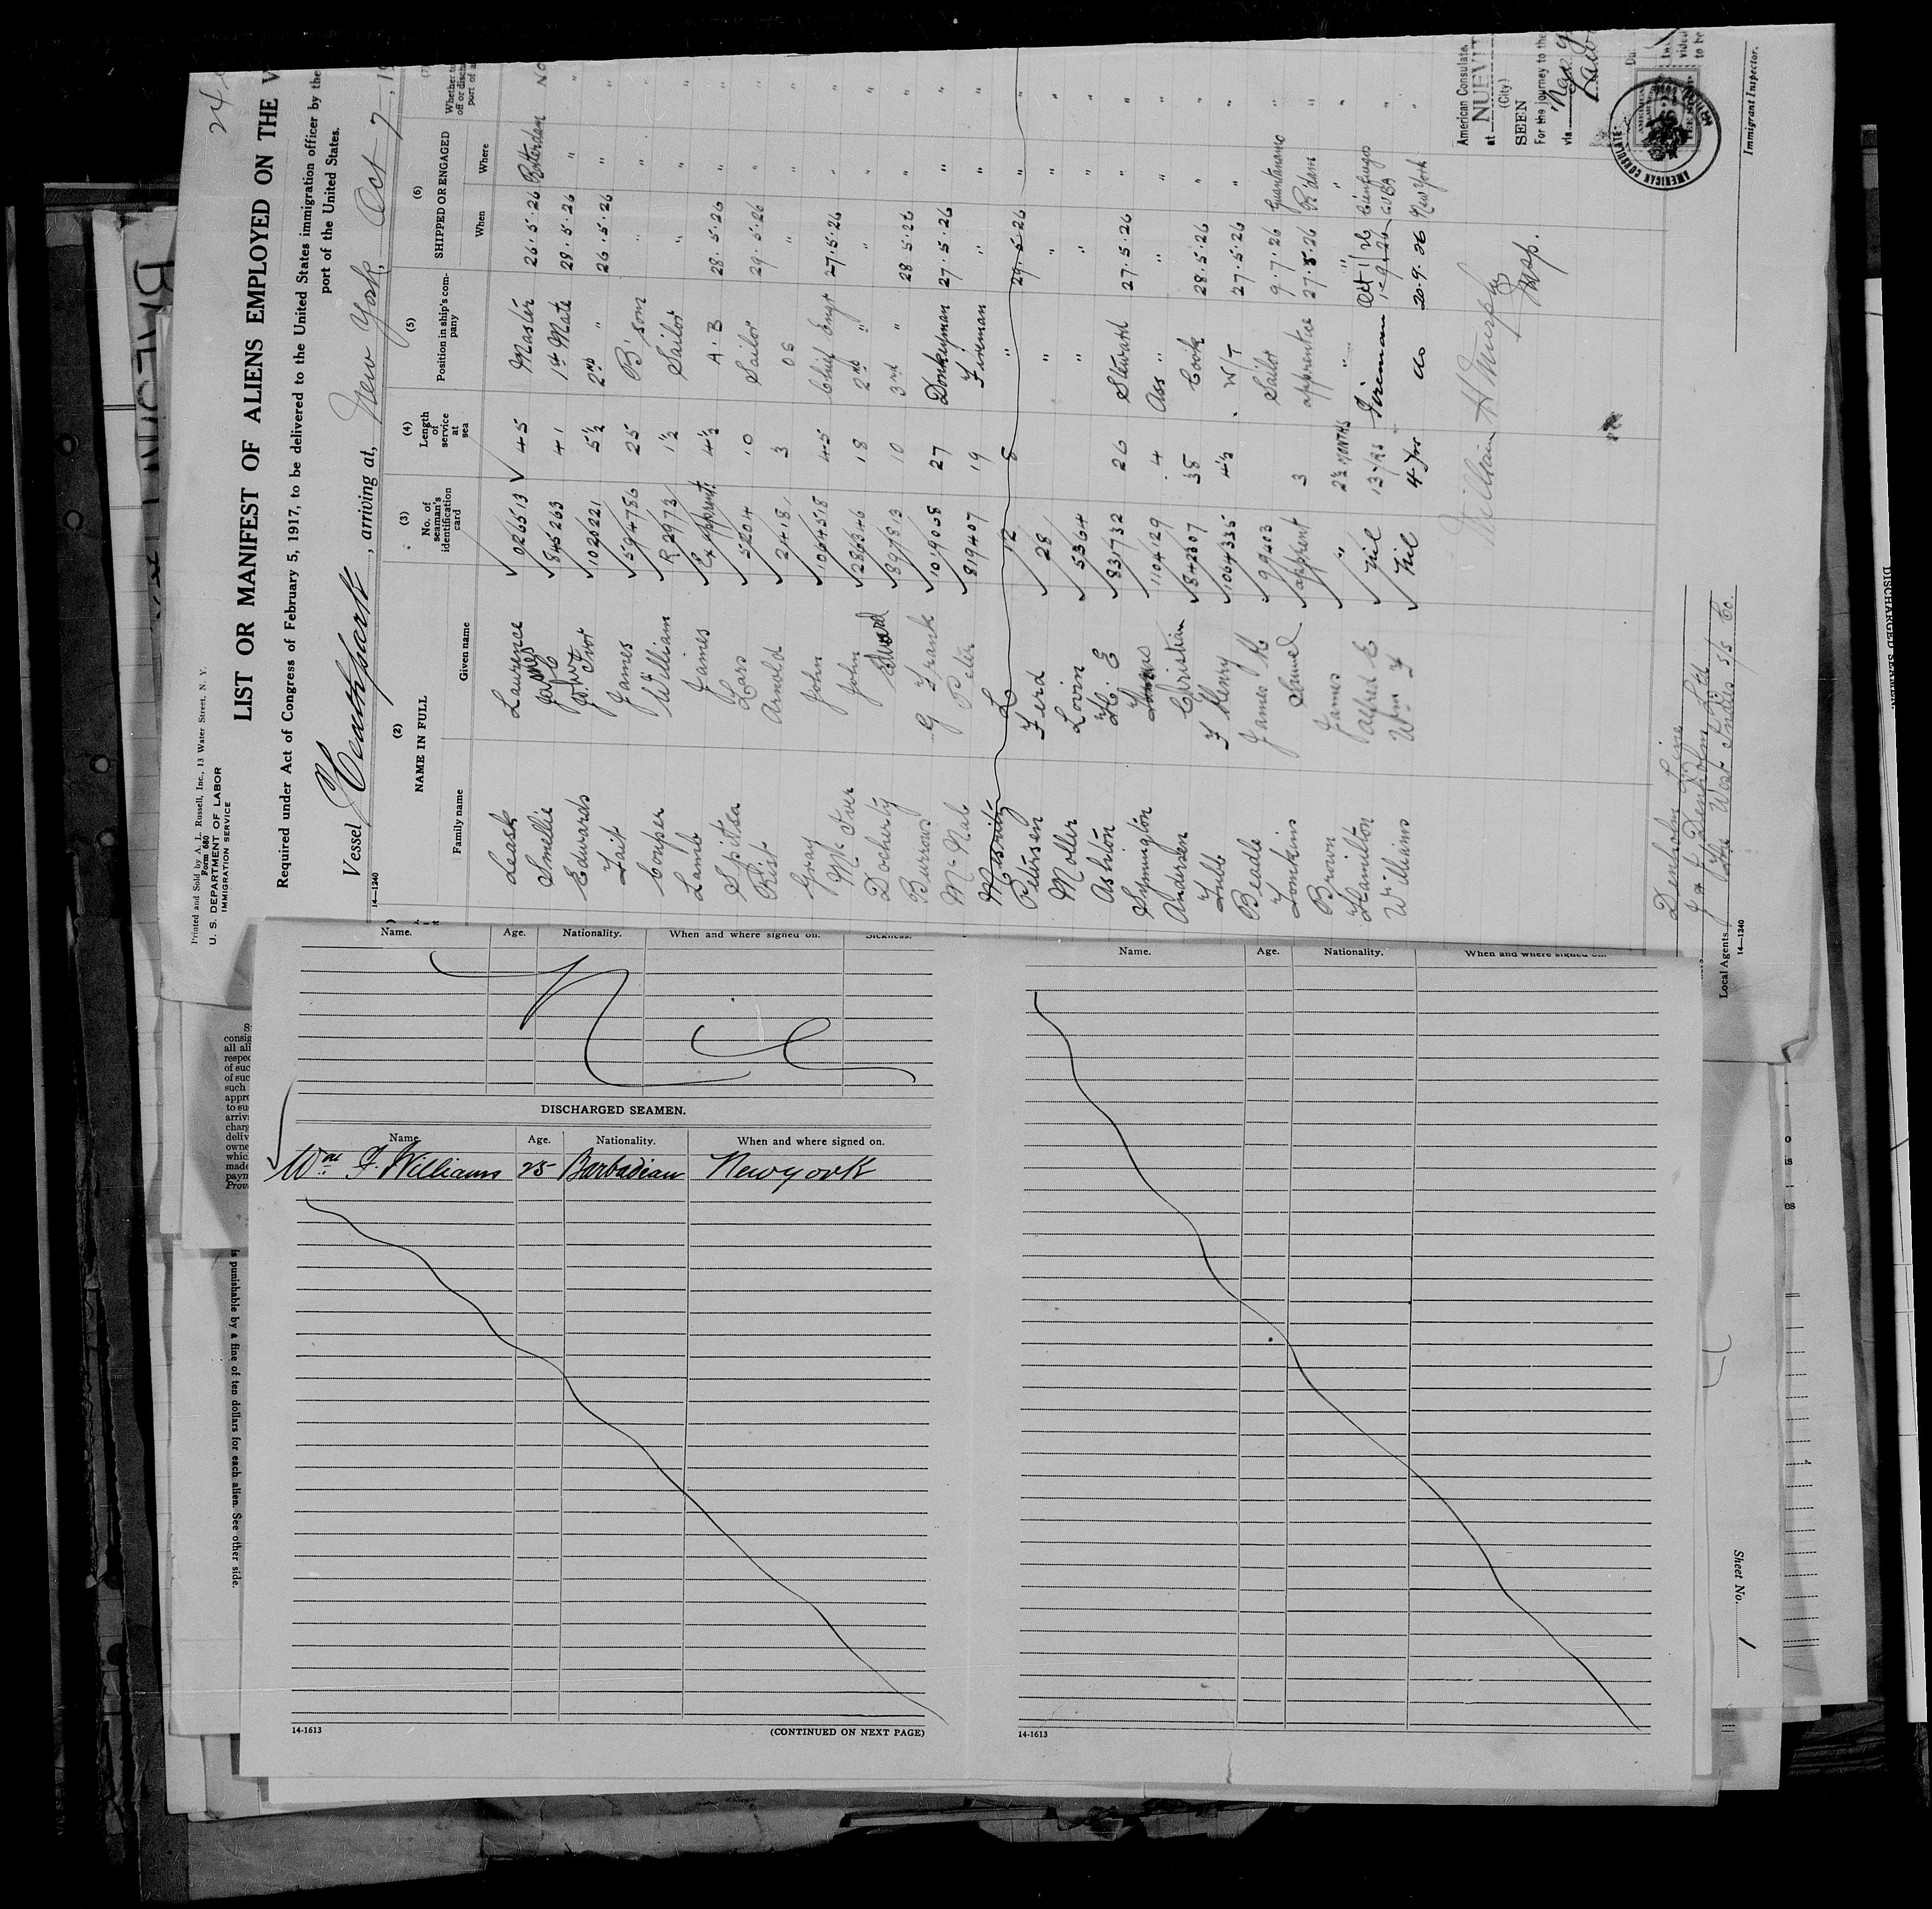 Printed and Sold by A. L. Russell, Inc., 13 Water Street, N. Y.
Form 680
U. S. DEPARTMENT OF LABOR
IMMIGRATION SERVICE
LIST OR MANIFEST OF ALIENS EMPLOYED ON THE V
Required under Act of Congress of February 5, 1917, to be delivered to the United States immigration officer by the
port of the United States.
Vessel Heathpark, arriving at, New York, Oct 7, 19
14—1240
(2) (3) (4) (5) (6) (7)
NAME IN FULL No. of seaman's identification card Length of service at sea Position in ship's company SHIPPED OR ENGAGED
Family name Given name When Where
Leask Laurence 026513 45 Master 26.5.26 Rotterdam No
Smellie James 845263 41 1st Mate 28.5.26 " "
Edwards Ivor 1025221 5½ 2nd " 26.5.26 " "
Tait James 594786 25 B'son " " "
Couper William R 2973 1½ Sailor " " "
Lamb James Ex Apprent. 4½ A.B 28.5.26 " "
Spitsa Lars 5204 10 Sailor 29.5.26 " "
Rist Arnold 2418 3 OS " " "
Gray John 1064518 45 Chief Engr 27.5.26 " "
McIver John 286346 18 2nd " " " "
Docherty Edward 897813 10 3rd " 28.5.26 " "
Burrows G Frank 1019008 27 Donkeyman 27.5.26 " "
McNab Peter 819407 19 Fireman " " "
L 12 8 " 29.5.26 " "
Petersen Ferd 28 " " " "
Moller Lovin 5364 " " " "
Ashton H. E 831732 26 Steward 27.5.26 " "
Symington 110429 4 Ass " " " "
Andersen Christian 842307 38 Cook 28.5.26 " "
Tubb F Henry 1064335 4½ WT 27.5.26 " "
Beadle James M 99403 Sailor 9.7.26 Guantanamo "
Tomkins Samuel apprent 3 apprentice 27.5.26 R'dam "
Brown James " 2½ MONTHS " " " "
Hamilton Alfred E Nil 13 yrs Fireman Oct 1/26 Cienfuegos CUBA "
Williams Wm F Nil 4 yrs do 20.9.26 New York "
William H Murphy
Insp.
American Consulate,
at NUEVIT
(City)
SEEN
For the journey to the
via New Y
AMERICAN CONSULATE
Immigrant Inspector.
Denholm Line
J & J Denholm Ltd
Local Agents The West Indies S/S Co.
14—1240
Name. Age. Nationality. When and where signed on. Sickness.
Nil
DISCHARGED SEAMEN.
Name. Age. Nationality. When and where signed on.
Wm. F. Williams 25 Barbadian New york
14-1613 (CONTINUED ON NEXT PAGE)
Name. Age. Nationality. When and where signed on.
14-1613
is punishable by a fine of ten dollars for each alien. See other side.
Sheet No. 1
DISCHARGED SEAMEN.